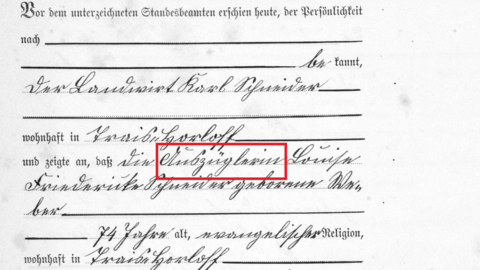 Vor dem unterzeichneten Standesbeamten erschien heute, der Persönlichkeit
nach
be kannt,
der Landwirt Karl Schneider
wohnhaft in Trais-Horloff
und zeigte an, daß die Auszüglerin Louise
Friedericke Schneider geborene We-
ber
74 Jahre alt, evangelischer Religion,
wohnhaft in Trais-Horloff